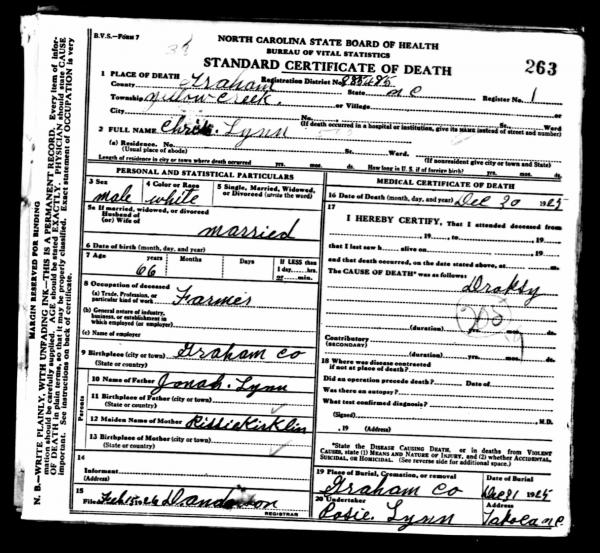 B.V.S.—FORM 7
NORTH CAROLINA STATE BOARD OF HEALTH
BUREAU OF VITAL STATISTICS
STANDARD CERTIFICATE OF DEATH
263
1 PLACE OF DEATH
Registration District No.
County Graham State N C Register No. 1
Township Yellow Creek. or Village or
City No. St. Ward
(If death occurred in a hospital or institution, give its NAME instead of street and number)
2 FULL NAME Lynn
(a) Residence. No. St. Ward.
(Usual place of abode) (If nonresident give city or town and State)
Length of residence in city or town where death occurred yrs. mos. ds. How long in U. S., if of foreign birth? yrs. mos. ds.
PERSONAL AND STATISTICAL PARTICULARS
3 Sex 4 Color or Race 5 Single, Married, Widowed, or Divorced (write the word)
male white
5a If married, widowed, or divorced
Husband of
(or) Wife of
married
6 Date of birth (month, day, and year)
7 Age years Months Days If LESS than 1 day, hrs. or min.
66
8 Occupation of deceased
(a) Trade, Profession, or particular kind of work Farmer
(b) General nature of industry, business, or establishment in which employed (or employer)
(c) Name of employer
9 Birthplace (city or town) Graham Co
(State or country)
Parents
10 Name of Father Jonah. Lynn
11 Birthplace of Father (city or town)
(State or country)
12 Maiden Name of Mother Kirklin
13 Birthplace of Mother (city or town)
(State or country)
14
Informant
(Address)
15
Filed
REGISTRAR
MEDICAL CERTIFICATE OF DEATH
16 Date of Death (month, day, and year) Dec 30 1925
17
I HEREBY CERTIFY, That I attended deceased from
, 19 , to , 19
that I last saw h alive on , 19
and that death occurred, on the date stated above, at m.
The CAUSE OF DEATH* was as follows:
Dropsy
(duration) yrs. mos. ds.
Contributory
(SECONDARY)
(duration) yrs. mos. ds.
18 Where was disease contracted
if not at place of death?
Did an operation precede death? Date of
Was there an autopsy?
What test confirmed diagnosis?
(Signed) M.D.
, 19 (Address)
*State the DISEASE CAUSING DEATH, or in deaths from VIOLENT CAUSES, state (1) MEANS AND NATURE OF INJURY, and (2) whether ACCIDENTAL, SUICIDAL, or HOMICIDAL. (See reverse side for additional space.)
19 Place of Burial, Cremation, or removal Date of Burial
Graham Co Dec 31 1925
20 Undertaker Address
Posie. Lynn
MARGIN RESERVED FOR BINDING
N. B.—WRITE PLAINLY, WITH UNFADING INK—THIS IS A PERMANENT RECORD. Every item of information should be carefully supplied. AGE should be stated EXACTLY. PHYSICIAN should state CAUSE OF DEATH in plain terms, so that it may be properly classified. Exact statement of OCCUPATION is very important. See instructions on back of certificate.